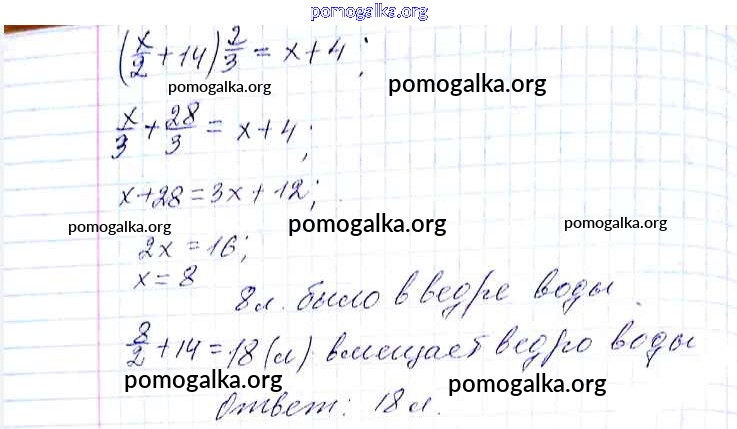 pomogalka.org
(x/2 + 14) 2/3 = x + 4;
pomogalka.org pomogalka.org
x/3 + 28/3 = x + 4;
x + 28 = 3x + 12;
pomogalka.org pomogalka.org pomogalka.org
2x = 16;
x = 8
8 л. было в ведре воды.
8/2 + 14 = 18 (л) вмещает ведро воды
pomogalka.org pomogalka.org
Ответ: 18 л.